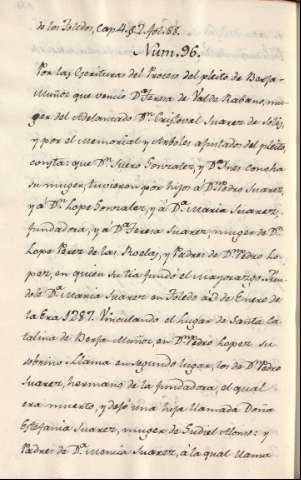 de los Toledos, Cap. 4. § 7. fol. 88.
Num. 96.
Por las Escrituras del Proceso del pleito de Berja-
Muñoz que vencio Dª. Teresa de Val de Rabano, mu-
ger del Adelantado Dn. Cristoval Suarez de Solis,
y por el Memorial, y Arboles ajustado del pleito,
consta: que Dn. Suero Gonzalez, y Dª. Ines Concha
su muger, tuvieron por hijos á Dn. Pedro Suarez,
y á Dn. Lope Gonzalez, y á Dª. Maria Suarez,
fundadora, y á Dª. Teresa Suarez, muger de Dn.
Lope Perez de las Roelas, y Padres de Dn. Pedro Lo-
pez, en quien su tia fundó el Mayorazgo.
dola Dª. Maria Suarez en Toledo á 2 de Enero de
la Era 1387. Vinculando el lugar de Santa Ca-
talina de Berja Muñoz, en Dn. Pedro Lopez su
sobrino. Llama en segundo lugar, los de Dn. Pedro
Suarez, hermano de la fundadora, el qual
era muerto, y dejó una hija llamada Dona
Estefania Suarez, muger de Gudiel Alonso: y
Padres de Dª. Mencia Suarez, á la qual llama